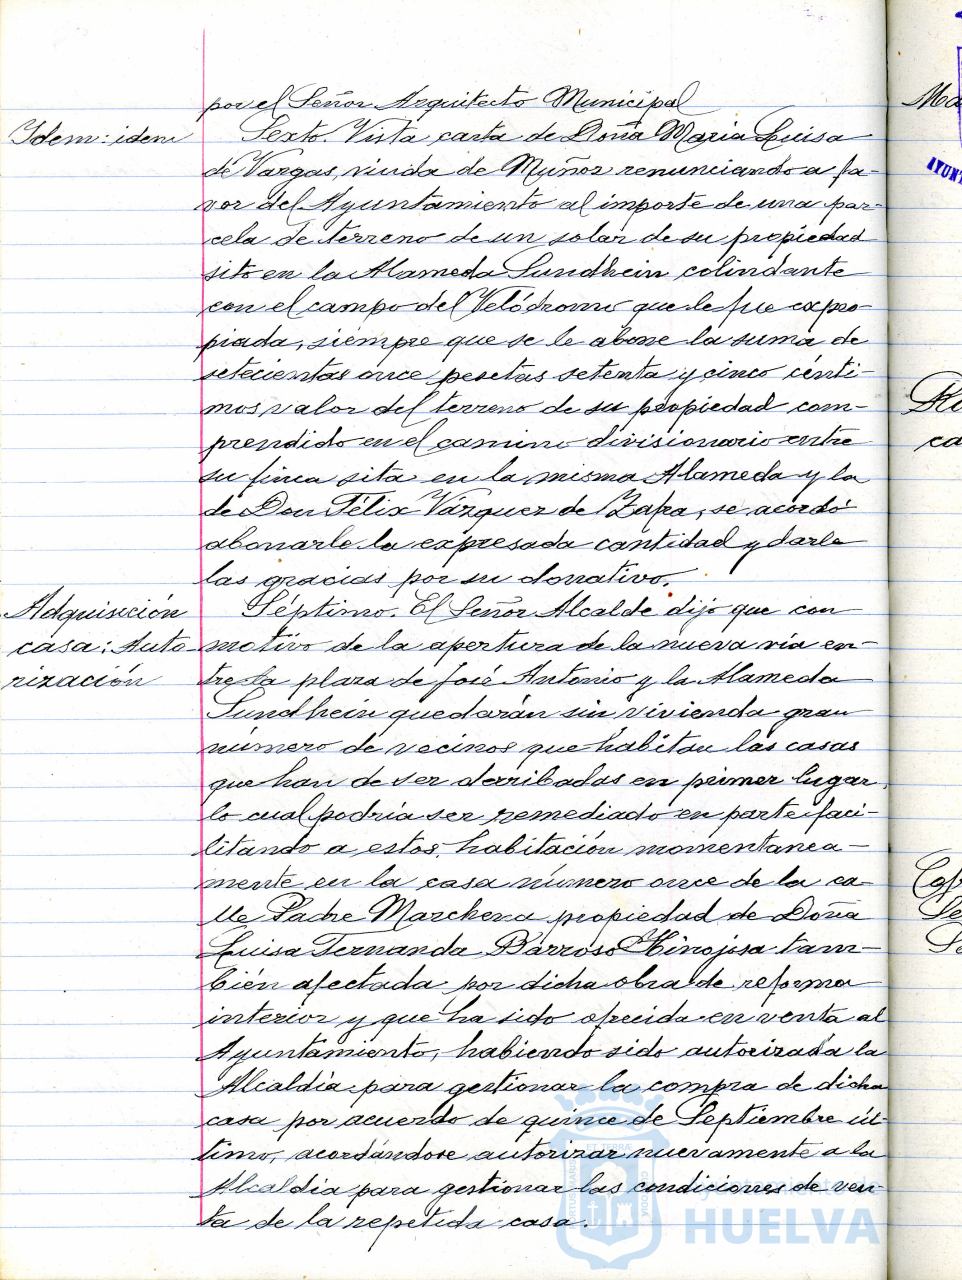 por el Señor Arquitecto Municipal
Idem: idem
Sexto. Vista carta de Doña Maria Luisa
de Vargas, viuda de Muñoz renunciando a fa-
vor del Ayuntamiento al importe de una par-
cela de terreno de un solar de su propiedad
sito en la Alameda Sundhein colindante
con el campo del Velódromo que le fue expro-
piada, siempre que se le abone la suma de
setecientas once pesetas setenta y cinco cénti-
mos, valor del terreno de su propiedad com-
prendido en el camino divisionario entre
su finca sita en la misma Alameda y la
de Don Félix Vázquez de Zafra, se acordó
abonarle la expresada cantidad y darle
las gracias por su donativo.
Adquisición
casa: Auto-
rización
Séptimo. El Señor Alcalde dijo que con
motivo de la apertura de la nueva vía en-
tre la plaza de José Antonio y la Alameda
Sundhein quedarán sin vivienda gran
número de vecinos que habitan las casas
que han de ser derribadas en primer lugar,
lo cual podría ser remediado en parte faci-
litando a estos, habitación momentanea-
mente en la casa número once de la ca-
lle Padre Marchena propiedad de Doña
Luisa Fernanda Barroso Hinojosa tam-
bién afectada por dicha obra de reforma
interior y que ha sido ofrecida en venta al
Ayuntamiento, habiendo sido autorizada la
Alcaldía para gestionar la compra de dicha
casa por acuerdo de quince de Septiembre úl-
timo, acordándose autorizar nuevamente a la
Alcaldía para gestionar las condiciones de ven-
ta de la repetida casa.
Ayuntamiento
HUELVA